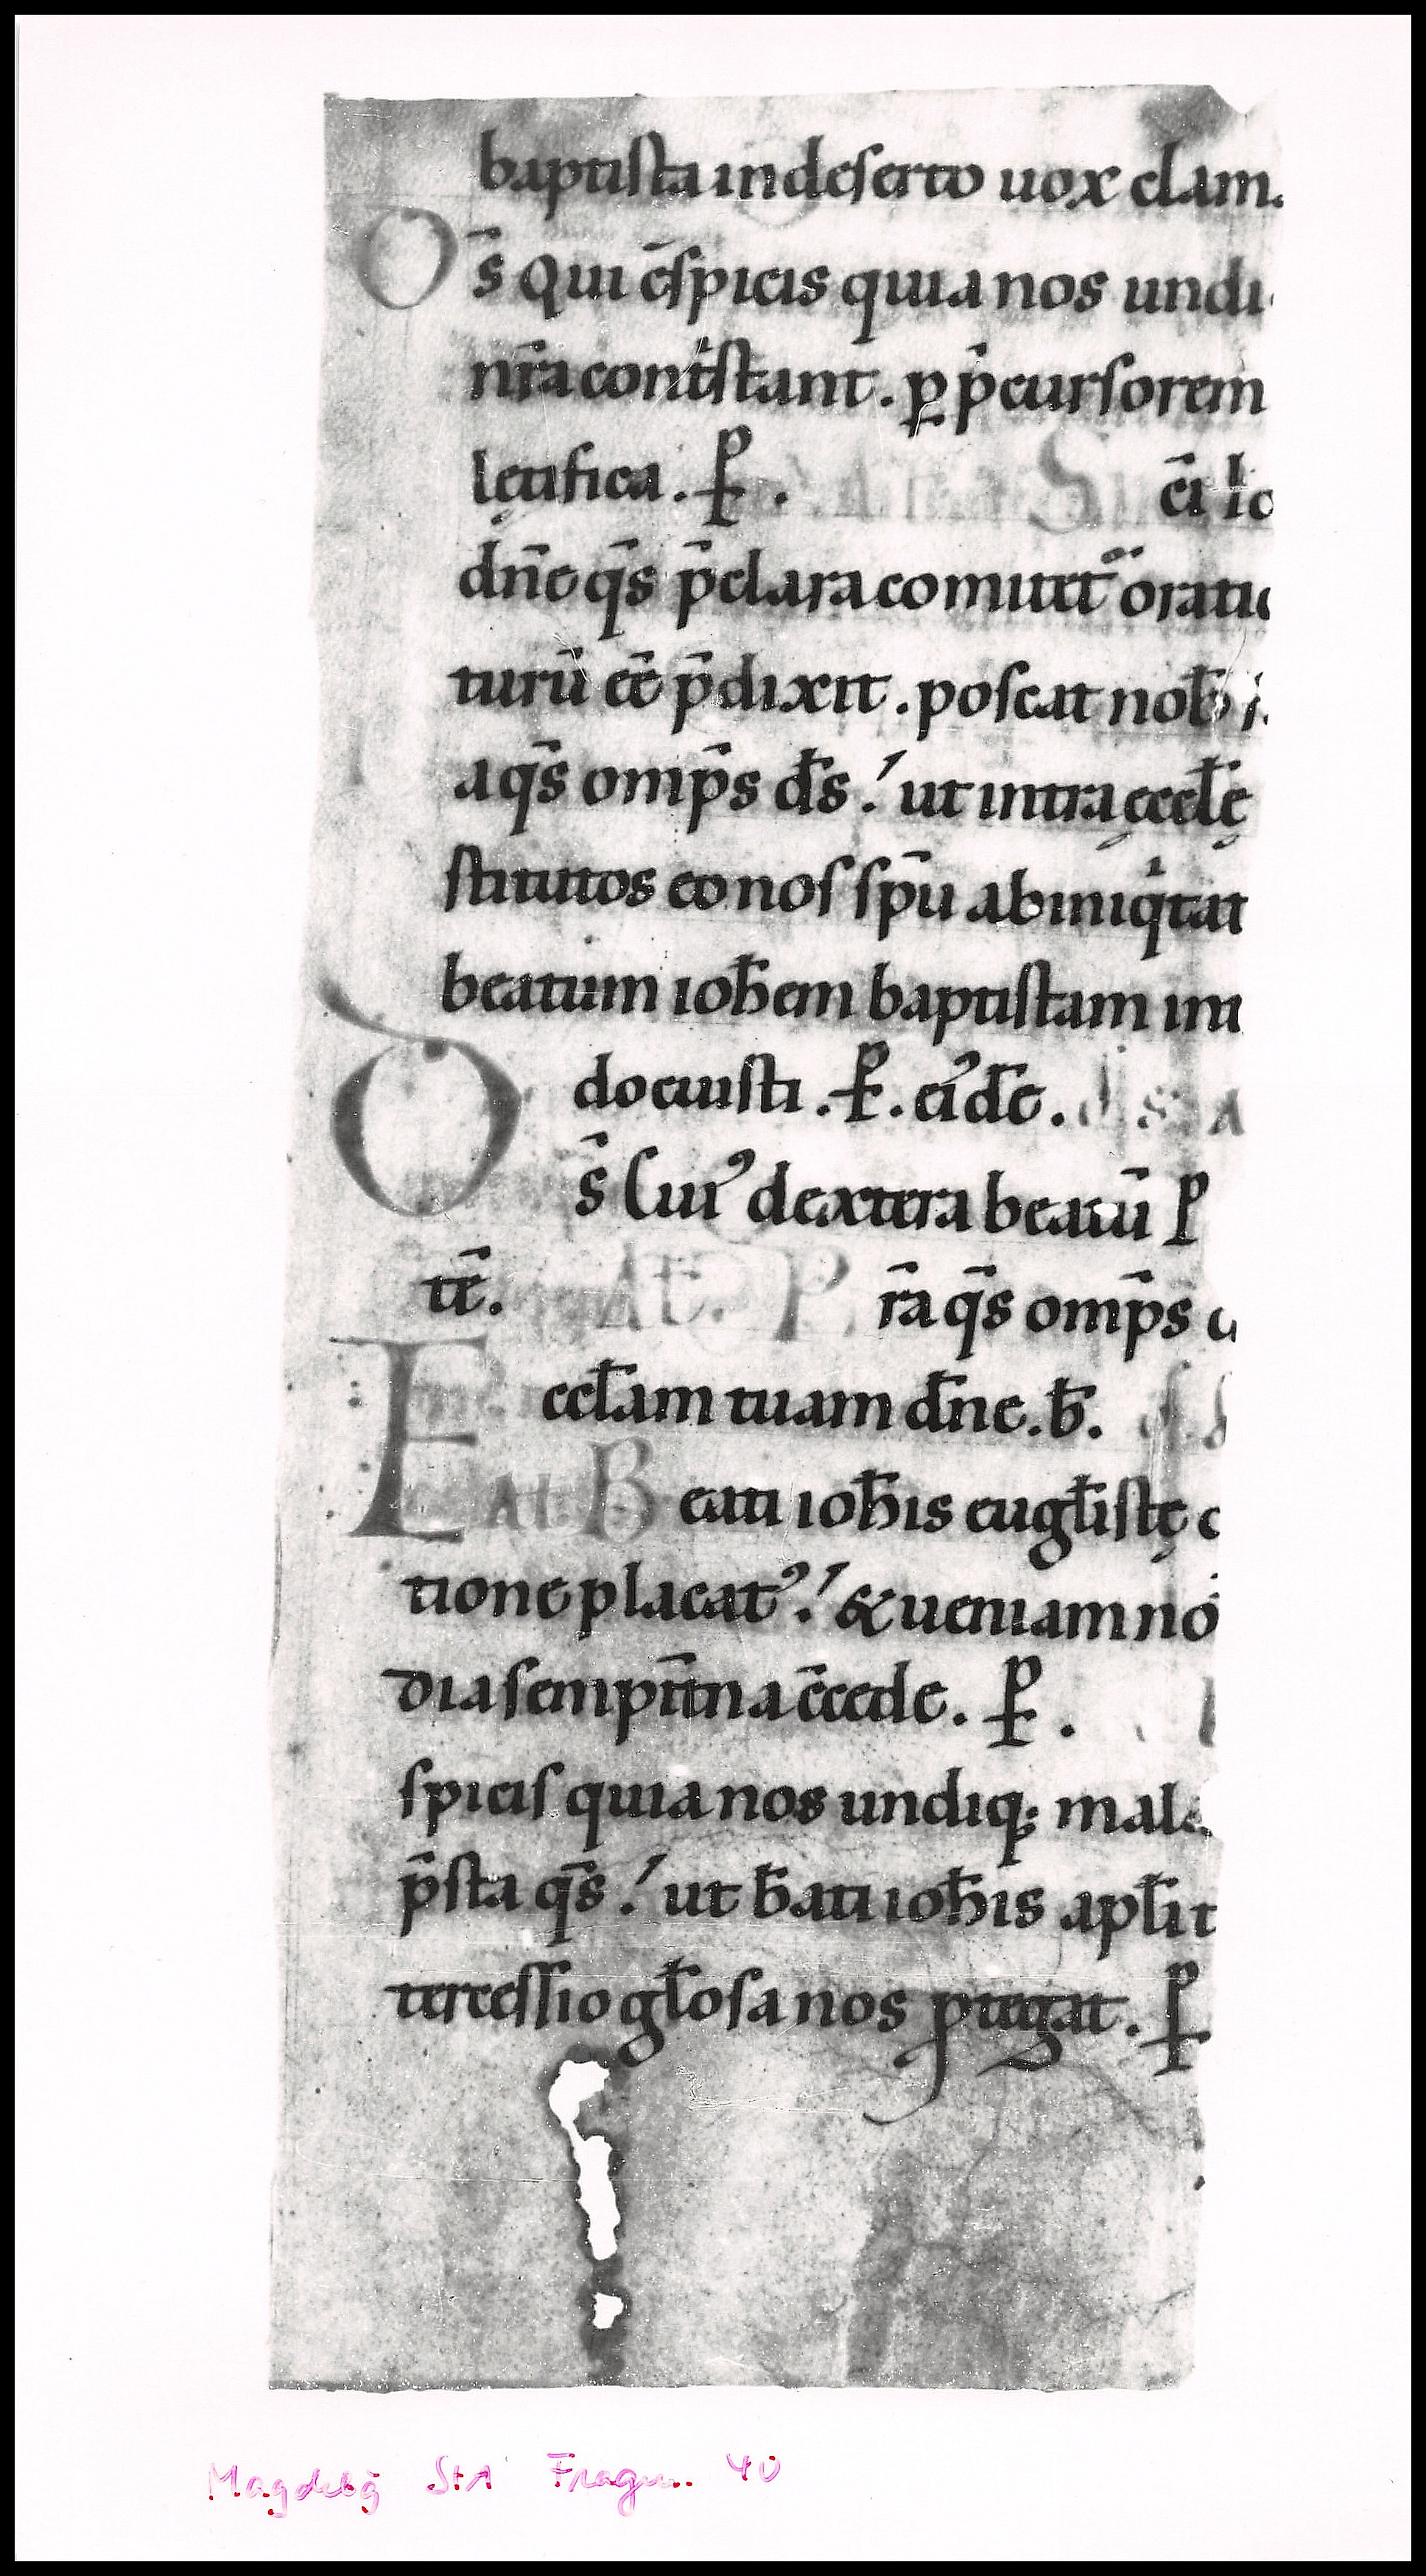 baptista in deserto uox clam.
Ds̄ Qui c̄spicis quia nos undi
nr̄a contˈstant. ꝑ p̄cursorem
lętifica. P. S c̄i Io
dn̄e qs̄ p̄clara comitet᷑ oratio
turū eē p̄dixit. poscat nob̄
a qs̄ omp̄s ds̄! ut intra ęccl̄ę
stitutos eo nos sp̄u ab iniqͥtat
beatum ioh̄em baptistam im
docuisti. P. eiˀdē.
Ds̄ Cuiˀ dextera beatū P
tē. At. P r̄a qs̄ omp̄s
E ccl̄am tuam dn̄e. b̄.
At. B eati ioh̄is eugl̄istę
tione placatˀ! & ueniam no
dia sempit̄na c̄cede. P.
spicis quia nos undiq; mala
p̄sta qs̄! ut b̄ati ioh̄is apl̄i t
tercessio gl̄osa nos ꝓtegat. P
Magdebg StA Fragm. 40